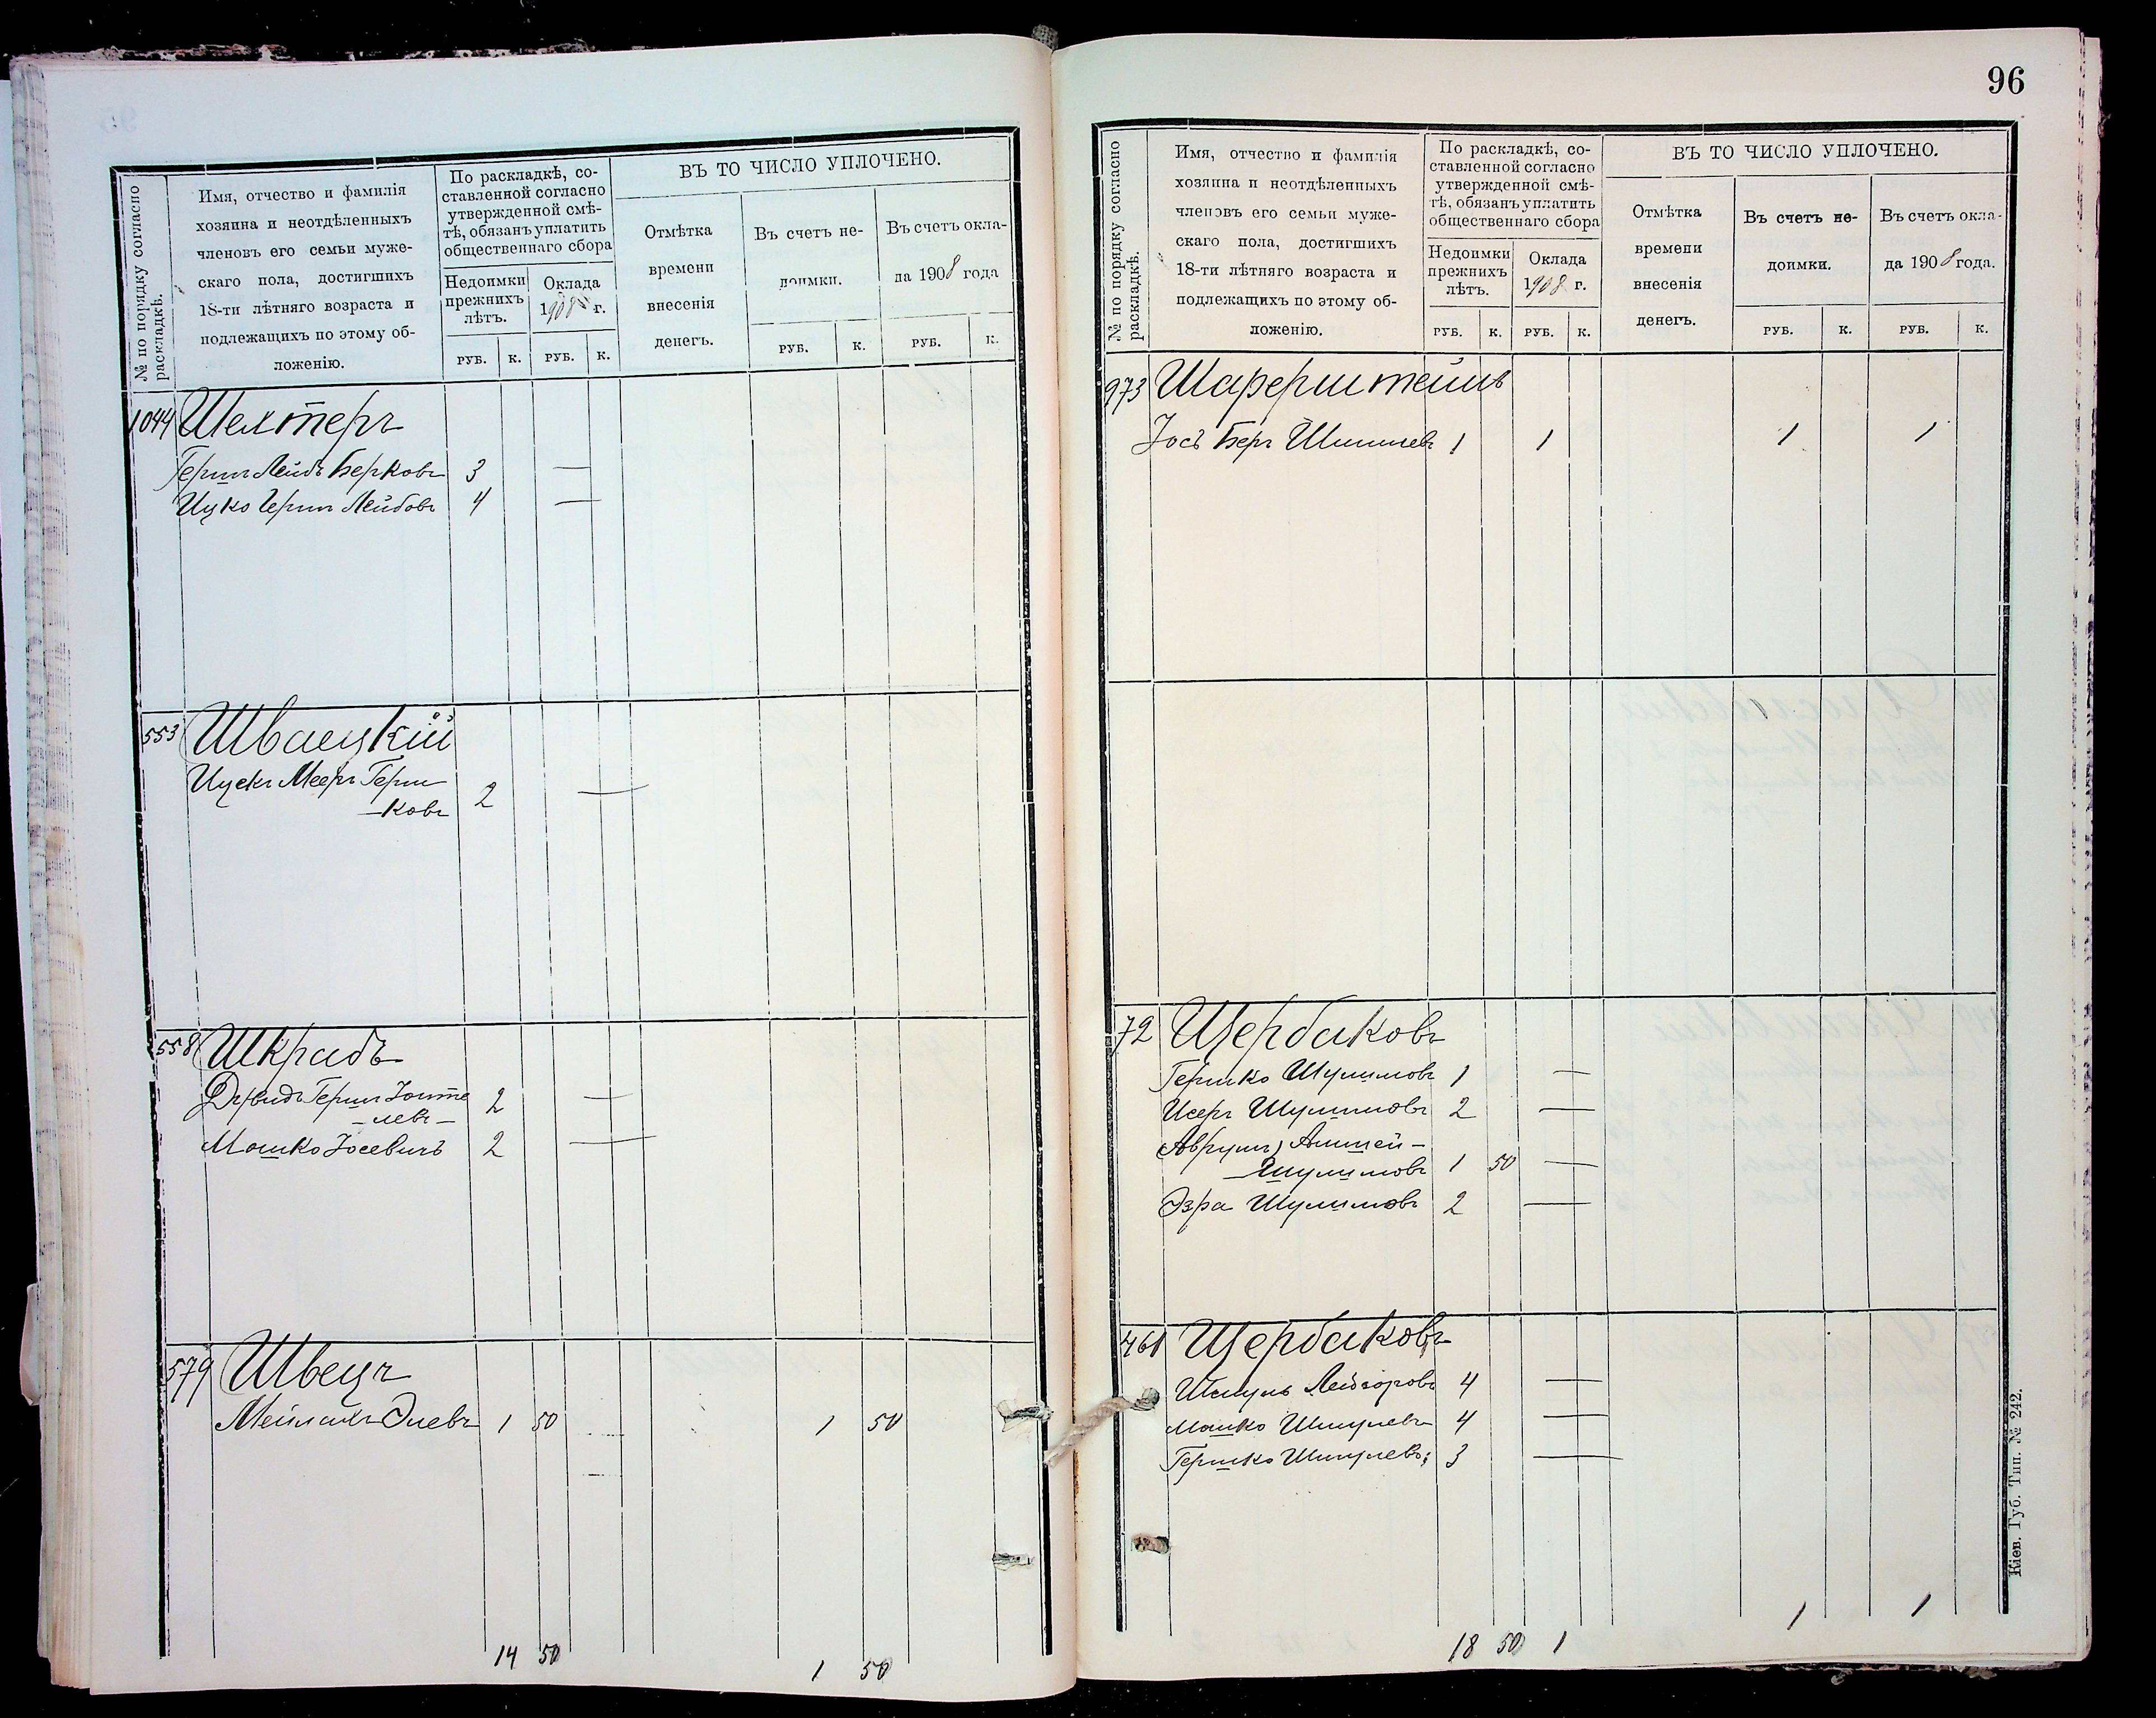 № по порядку согласно раскладкѣ.
Имя, отчество и фамилія
хозяина и неотдѣленныхъ
членовъ его семьи муже-
скаго пола, достигшихъ
18-ти лѣтняго возраста и
подлежащихъ по этому об-
ложенію.
По раскладкѣ, со-
ставленной согласно
утвержденной смѣ-
тѣ, обязанъ уплатить
общественнаго сбора
Недоимки
прежнихъ
лѣтъ.
Оклада
1908 г.
РУБ. К. РУБ. К.
ВЪ ТО ЧИСЛО УПЛОЧЕНО.
Отмѣтка
времени
внесенія
денегъ.
Въ счетъ не-
доимки.
Въ счетъ окла-
да 1908 года
РУБ. К. РУБ. К.
1044 Шехтеръ
Герш Лейб Берковъ 3 —
Ицко Герш Лейбовъ 4 —
553 Шваецкій
Ицекъ Мееръ Герш
—ковъ 2 —
558 Шкрабъ
Давидъ Герш
—левъ— 2 —
Мошко Іосевичъ 2 —
579 Швецъ
Мейлахъ Элевъ 1 50 1 50
14 50 1 50
96
№ по порядку согласно раскладкѣ.
Имя, отчество и фамилія
хозяина и неотдѣленныхъ
членовъ его семьи муже-
скаго пола, достигшихъ
18-ти лѣтняго возраста и
подлежащихъ по этому об-
ложенію.
По раскладкѣ, со-
ставленной согласно
утвержденной смѣ-
тѣ, обязанъ уплатить
общественнаго сбора
Недоимки
прежнихъ
лѣтъ.
Оклада
1908 г.
РУБ. К. РУБ. К.
ВЪ ТО ЧИСЛО УПЛОЧЕНО.
Отмѣтка
времени
внесенія
денегъ.
Въ счетъ не-
доимки.
Въ счетъ окла-
да 1908 года.
РУБ. К. РУБ. К.
973 Шаферштейнъ
Іось Беръ 1 1 1 1
72 Щербаковъ
Гершко Шулимовъ 1 —
Исеръ Шулимовъ 2 —
Аврумъ, Аншей—
—Шулимовъ 1 50 —
Эзра Шулимовъ 2 —
461 Щербаковъ
Шмуль 4 —
Мошко Шмулевъ 4 —
Гершко Шмулевъ 3 —
18 50 1 1 1
Кіев. Губ. Тип. № 242.